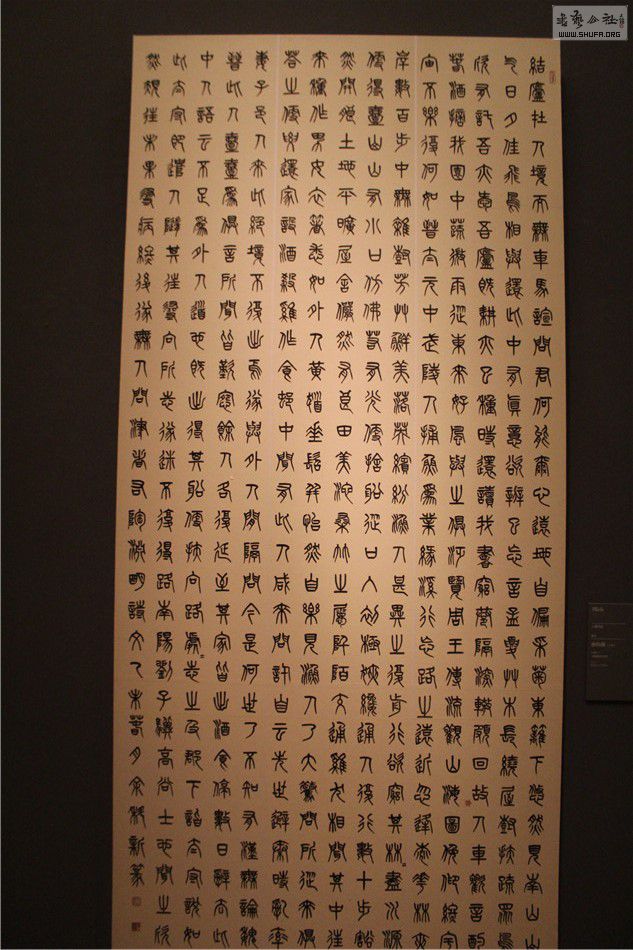 結廬在人境而無車馬諠問君何能爾心遠地自偏采菊東籬下悠然見南山山
气日夕佳飛鳥相與還此中有真意欲辨已忘言孟夏艸木長繞屋樹扶疏眾
欣有託吾亦愛吾廬既耕亦已種時還讀我書窮巷隔深轍頗回故人車歡言酌
春酒摘我園中蔬微雨從東來好風與之俱汎覽周王傳流觀山海圖俛仰終宇
宙不樂復何如晉太元中武陵人捕魚為業緣溪行忘路之遠近忽逢桃華林夾
岸數百步中無雜樹芳艸鮮美落英繽紛漁人甚異之復前行欲窮其林盡水源
便得壹山山有小口仿佛若有光便捨船從口入初極狹纔通人復行數十步豁
然開朗土地平曠屋舍儼然有良田美池桑竹之屬阡陌交通雞犬相聞其中往
來種作男女衣著悉如外人黃髮垂髫并怡然自樂見漁人乃大驚問所從來具
答之便要還家設酒殺雞作食村中聞有此人咸來問訊自云先世避秦時亂率
妻子邑人來此絕境不復出焉遂與外人間隔問今是何世乃不知有漢無論魏
晉此人壹壹為具言所聞皆歎惋餘人各復延至其家皆出酒食停數日辭去此
中人語云不足為外人道也既出得其船便扶向路處志之及郡下詣太守說如
此太守即遣人隨其往尋向所志遂迷不復得路南陽劉子驥高尚士也聞之欣
然規往未果尋病終後遂無人問津者右陶淵明詩文乙未春月新篆
WWW.SHUFA.ORG